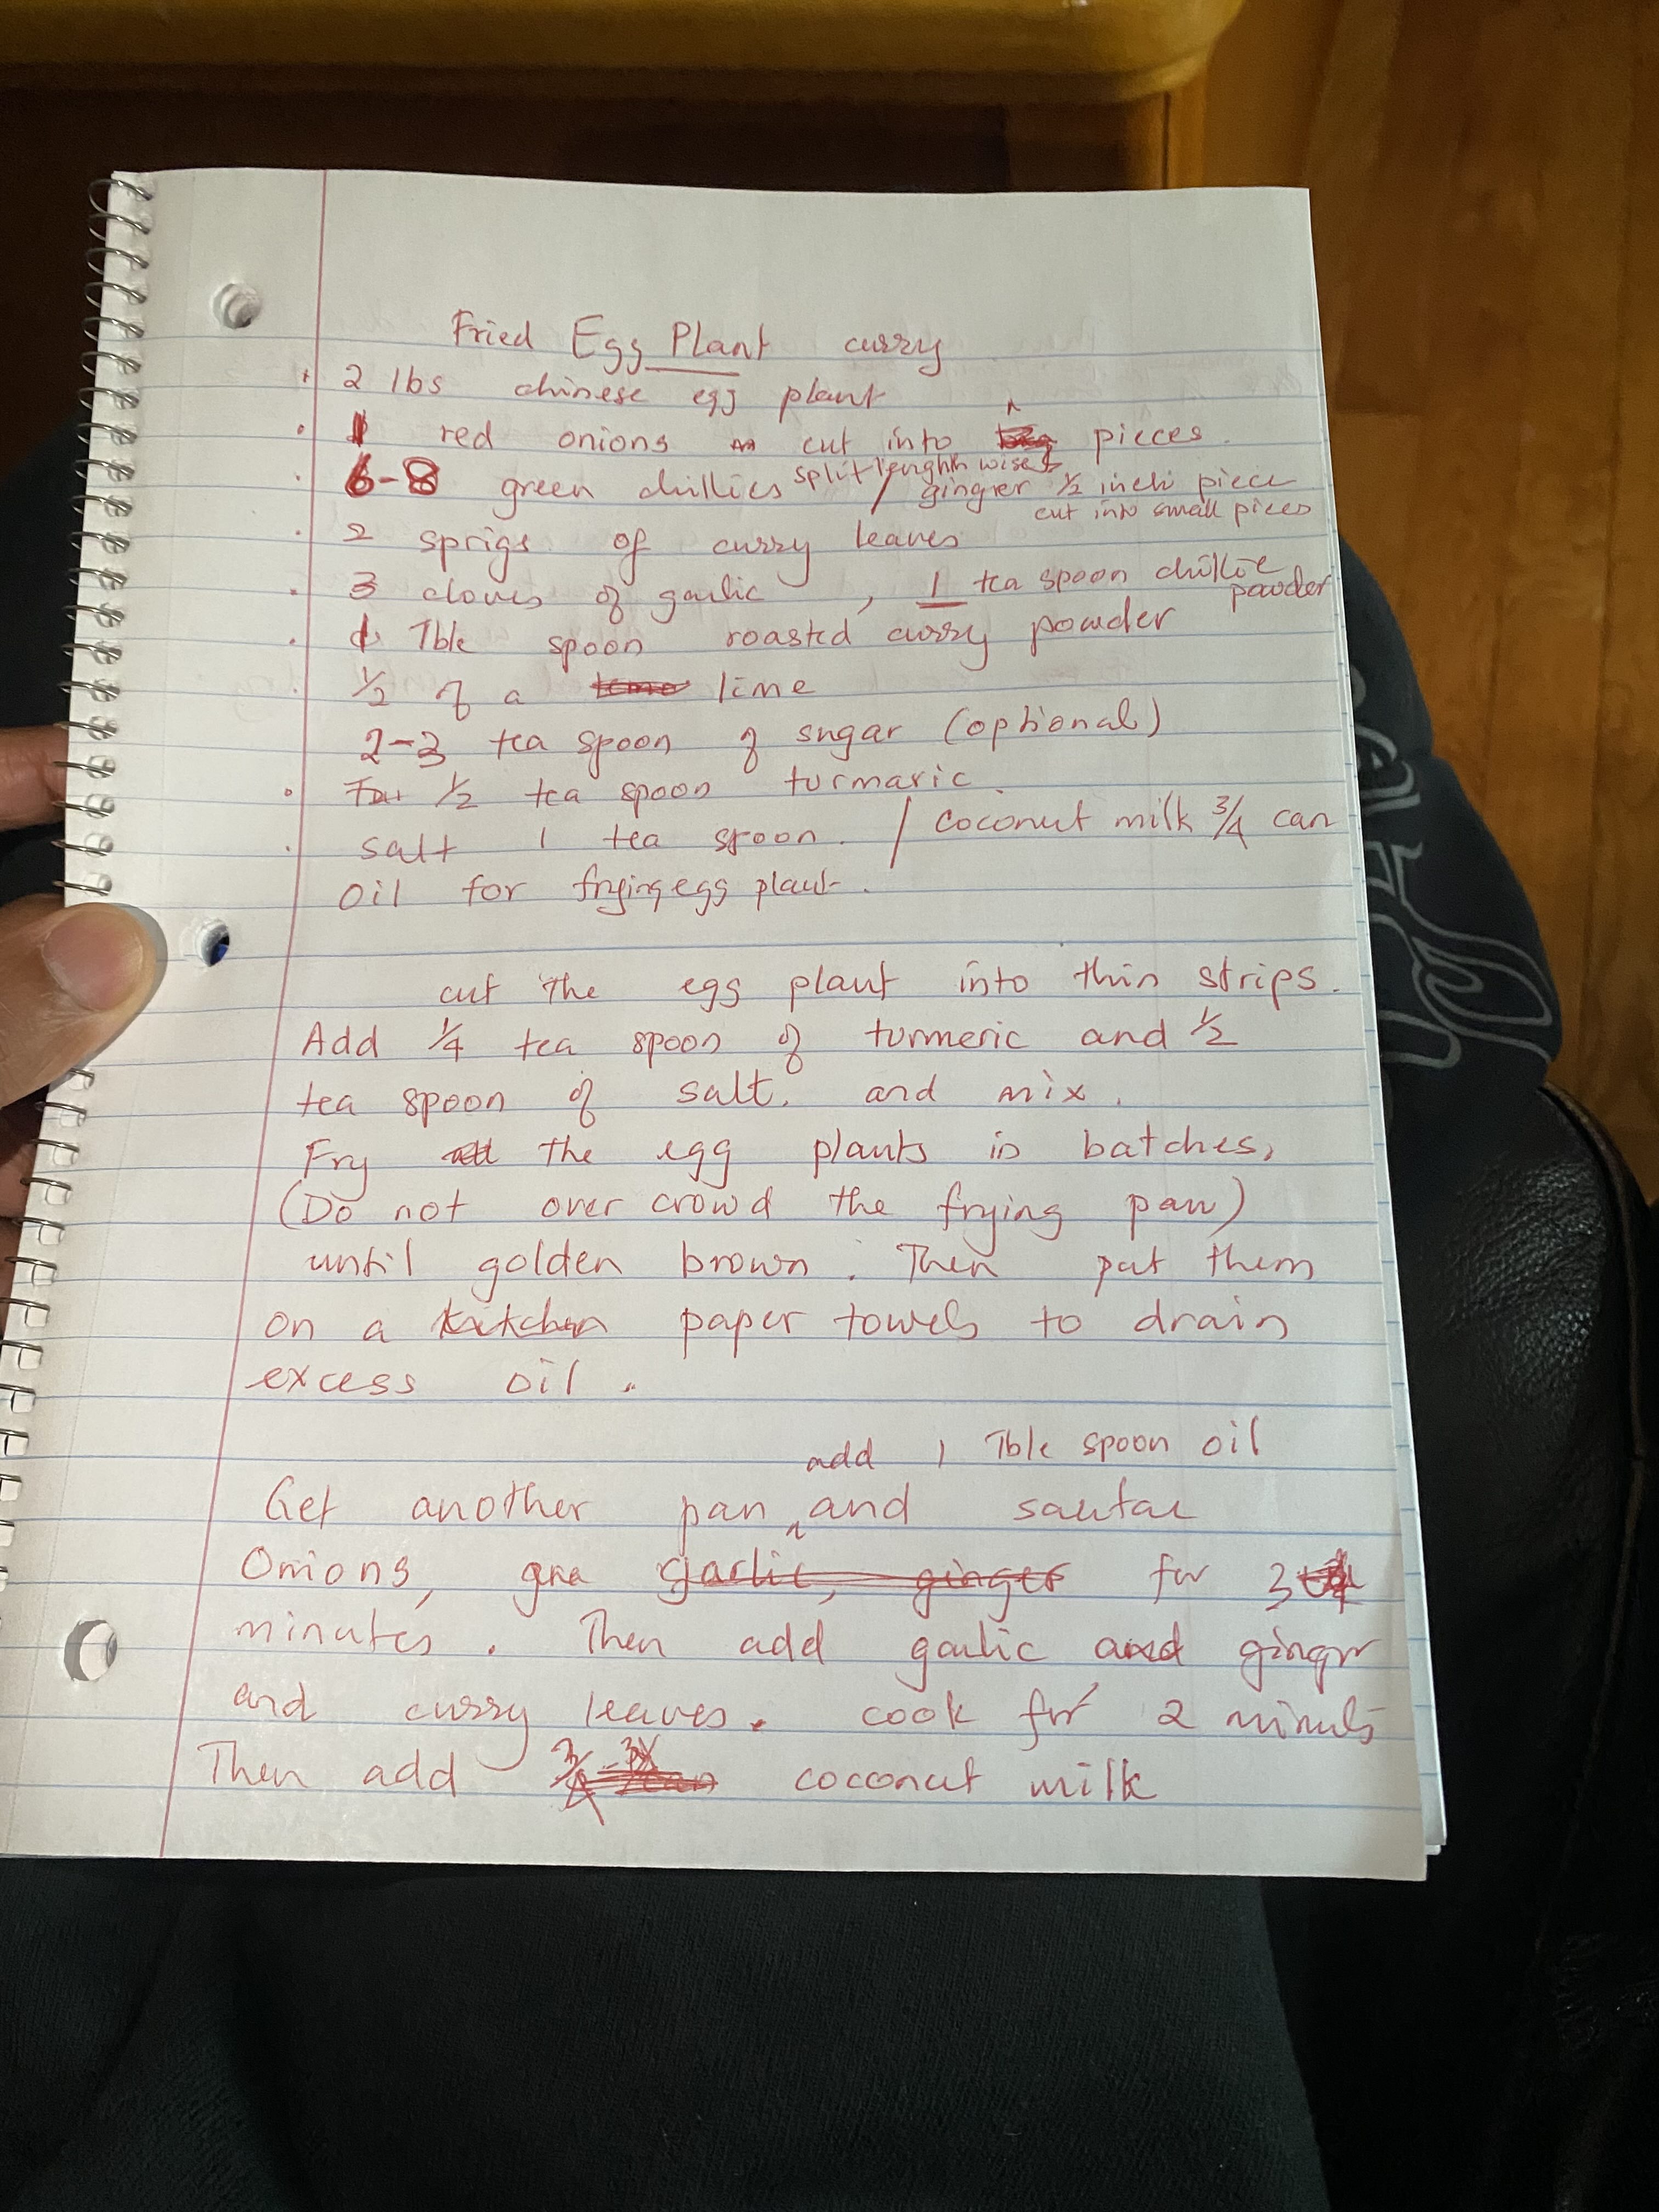 Fried Egg Plant curry
2 lbs chinese egg plant
1 red onions cut into pieces.
6-8 green chillies split lenghth wise / ginger 1/2 inch piece
cut into small pieces
2 sprigs of curry leaves
3 cloves of garlic, 1 tea spoon chillie powder
1 Tble spoon roasted curry powder
1/2 of a lime
2-3 tea spoon of sugar (optional)
1/2 tea spoon turmaric.
salt 1 tea spoon. / coconut milk 3/4 can
oil for frying egg plant.
cut the egg plant into thin strips.
Add 1/4 tea spoon of turmeric and 1/2
tea spoon of salt. and mix.
Fry the egg plants in batches,
(Do not over crowd the frying pan)
until golden brown. Then put them
on a paper towels to drain
excess oil.
add 1 Tble spoon oil
Get another pan and sautae
Onions, for 3
minutes. Then add garlic and ginger
and curry leaves. cook for 2 minuts
Then add coconut milk